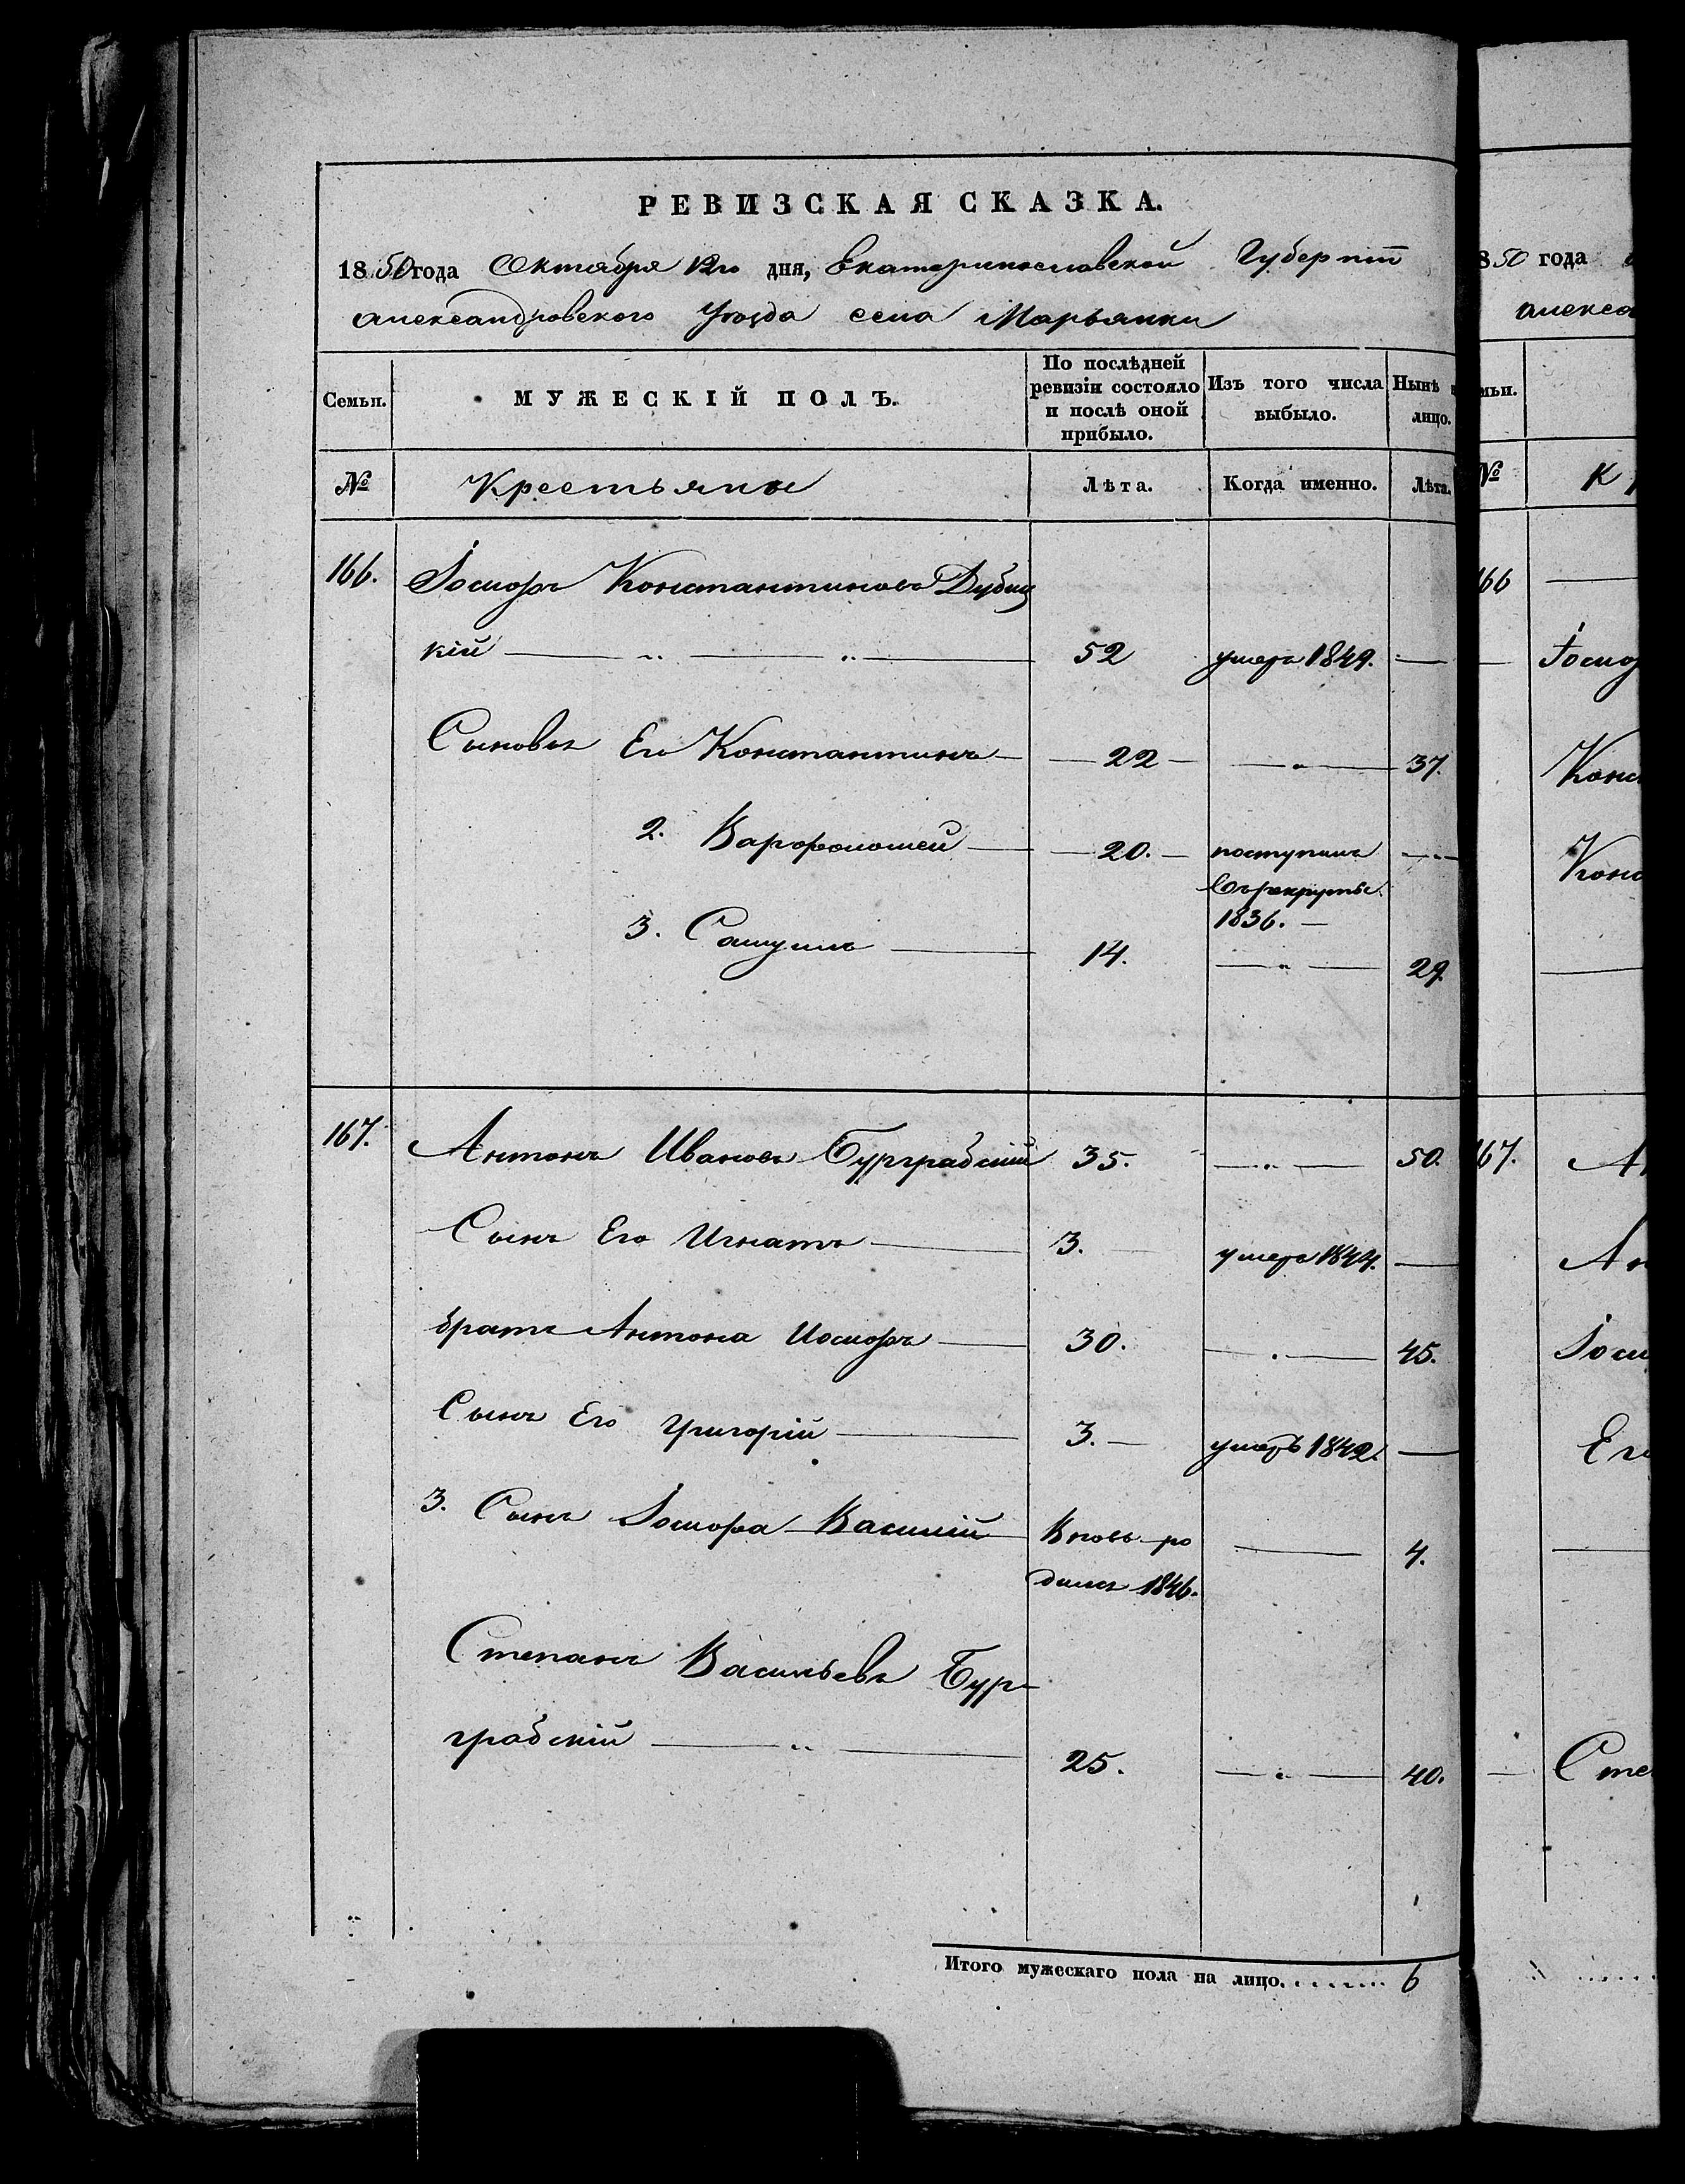 РЕВИЗСКАЯ СКАЗКА.
1850 года Октября 12го дня, Екатеринославской Губерніи
Александровского Уѣзда села Марьянки
Семьи. МУЖЕСКІЙ ПОЛЪ. По послѣдней ревизіи состояло и послѣ оной прибыло. Изъ того числа выбыло. Нынѣ н лицо.
№ Крестьяне Лѣта. Когда именно. Лѣта.
166. Іосифъ Константиновъ Дубиц
кій — „ — „ — 52 умеръ 1849. —
Сыновья Его Константинъ — 22 — „ — 37.
2. Варфоломей — 20. — поступилъ —„—
въ рекруты
1836. —
3. Самуилъ — 14. — „ — 29.
167. Антонъ Ивановъ Бурграбскій 35. — „ — 50.
Сынъ Его Игнатъ — 3. умеръ 1844. —
братъ Антона Иосифъ — 30. — „ — 45.
Сынъ Его Григорій — 3. — умеръ 1842. —
3. Сынъ Іосифа Василій Вновь ро — 4.
дился 1846.
Степанъ Васильевъ Бур-
грабскій — „ — 25. — „ — 40.
Итого мужескаго пола на лицо. . . . . . . . 6
850 года
Алекса
мьи.
№ К
166 —
Іосиф
Конс
Конс
167. Ан
Ан
Іоси
Его
Сте